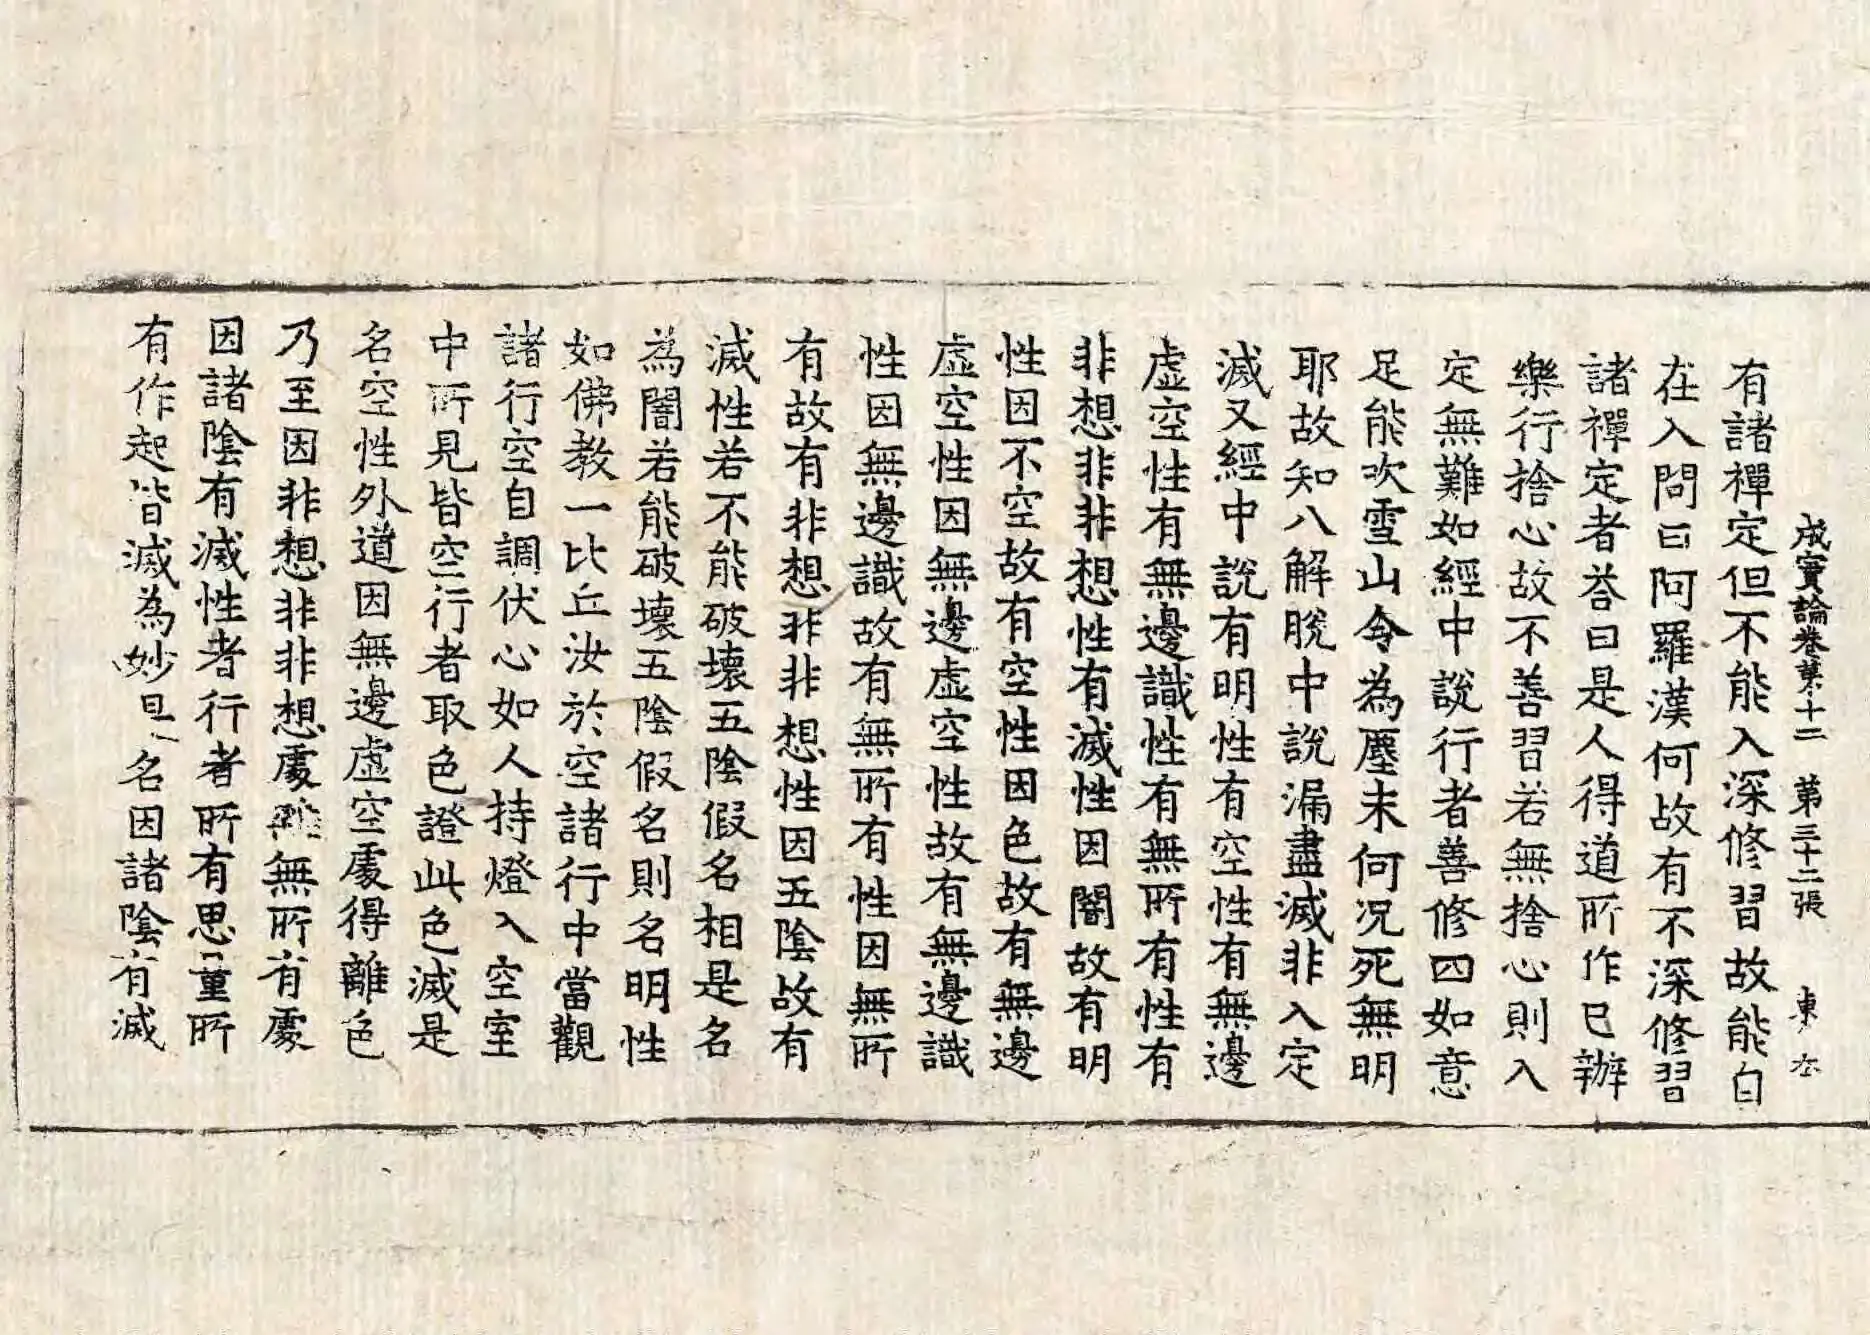 成實論卷第十二 第三十二張 東
有諸禪定但不能入深修習故能自
在入問曰阿羅漢何故有不深修習
諸禪定者荅曰是人得道所作已辦
樂行捨心故不善習若無捨心則入
定無難如經中說行者善修四如意
足能吹雪山令為塵末何況死無明
耶故知八解脫中說漏盡滅非入定
滅又經中說有明性有空性有無邊
虛空性有無邊識性有無所有性有
非想非非想性有滅性因闇故有明
性因不空故有空性因色故有無邊
虛空性因無邊虛空性故有無邊識
性因無邊識故有無所有性因無所
有故有非想非非想性因五陰故有
滅性若不能破壞五陰假名相是名
為闇若能破壞五陰假名則名明性
如佛教一比丘汝於空諸行中當觀
諸行空自調伏心如人持燈入空室
中所見皆空行者取色證此色滅是
名空性外道因無邊虛空處得離色
乃至因非想非非想處離無所有處
因諸陰有滅性者行者所有思量所
有作起皆滅為妙是名因諸陰有滅